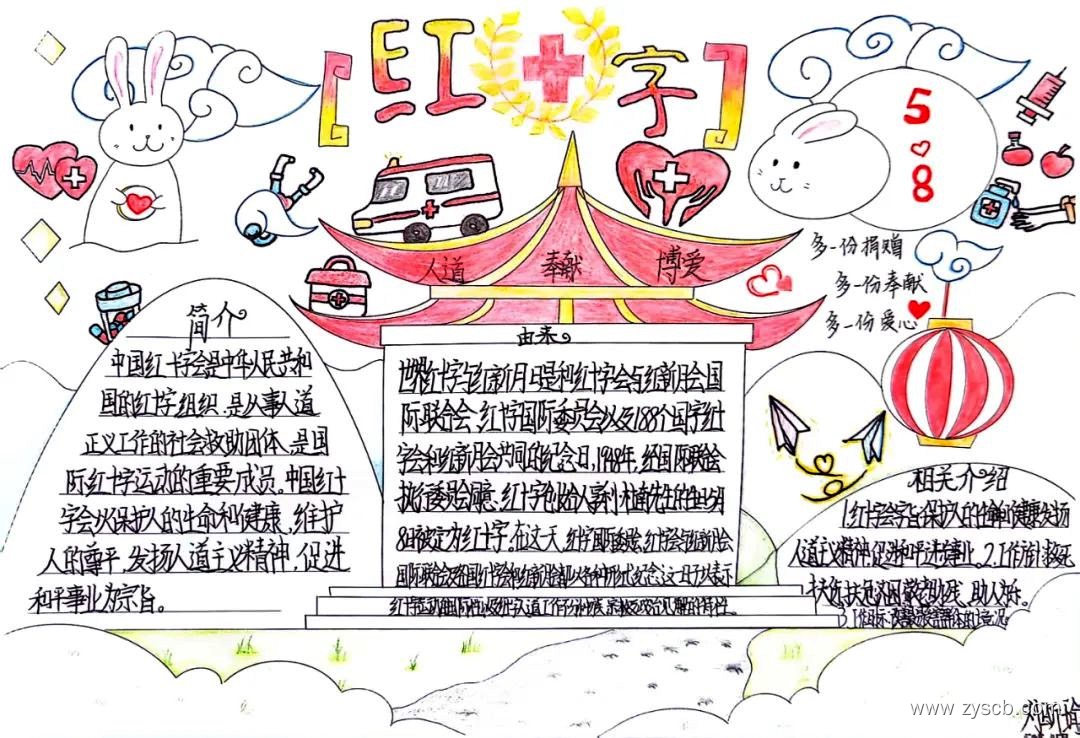 红十字
5
8
人道 奉献 博爱
多一份捐赠
多一份奉献
多一份爱心
简介
中国红十字会是中华人民共和
国的红十字组织,是从事人道
正义工作的社会救助团体,是国
际红十字运动的重要成员。中国红十
字会以保护人的生命和健康,维护
人的尊严,发扬人道主义精神,促进
和平事业为宗旨。
由来
世界红十字与红新月日是和红十字会与红新月会国
际联合会、红十字国际委员会以及188个国家红十
字会和红新月会共同的纪念日,1948年,经国际联合会
执行委员会同意,红十字创始人亨利·杜南先生的生日5月
8日被定为红十字。在这一天,红十字国际委员会、红十字会与红新月会
国际联合会及各国红十字会和红新月会都以各种形式纪念这一日子,以表示
相关介绍
人道主义精神,促进和平进步事业。2.工作方针:救死
扶伤,扶危济困,敬老助残,助人为乐。
www.zyscb.com